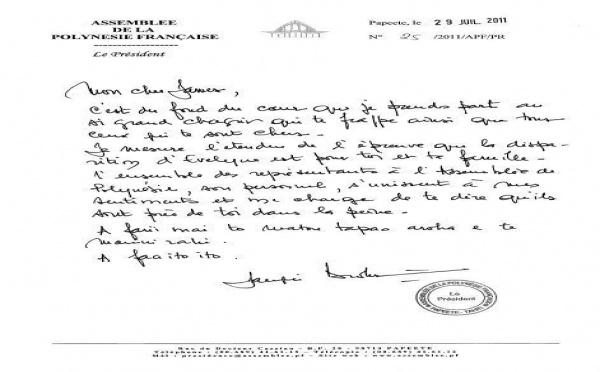 ASSEMBLEE
DE LA
POLYNESIE FRANÇAISE
Le Président
Papeete, le 29 JUIL. 2011
N° 25 /2011/APF/PR
Mon cher James,
C'est du fond du cœur que je prends part au
si grand chagrin qui te frappe ainsi que tous
ceux qui te sont chers.
Je mesure l'étendue de l'épreuve que la dispa-
rition d'Evelyne est pour toi et ta famille.
L'ensemble des représentants à l'Assemblée de
Polynésie, son personnel, s'unissent à mes
sentiments et me charge de te dire qu'ils
sont près de toi dans la peine.
A farii mai to matou tapao aroha e te
mauiui rahi.
A faaitoito.
ASSEMBLEE DE LA POLYNESIE FRANÇAISE
Le
Président
PAPEETE - TAHITI
Rue du Docteur Cassiau - B.P. 28 - 98713 PAPEETE
Téléphone : (00.689) 41.61.13 - Télécopie : (00.689)
Mél : presidence@assemblee.pf - Site web : www.assemblee.pf